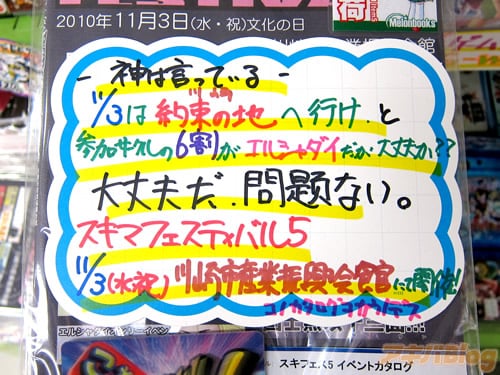 2010年11月3日(水・祝)文化の日
Melonbooks
- 神は言っている -
11/3は約束の地へ行け.と
参加サークルの6割がエルシャダイだが大丈夫か??
大丈夫だ.問題ない。
スキマフェスティバル5
11/3(水祝)川崎市産業振興会館にて開催!
コノカタログヲカウノデス
エルシャダイオンリーイベン
スキフェス5 イベントカタログ
アキバBlog